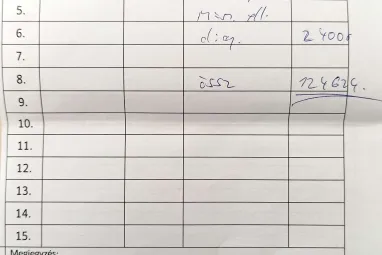 5.
6. 2400
7.
8. össz 124624.
9.
10.
11.
12.
13.
14.
15.
Megjegyzés: